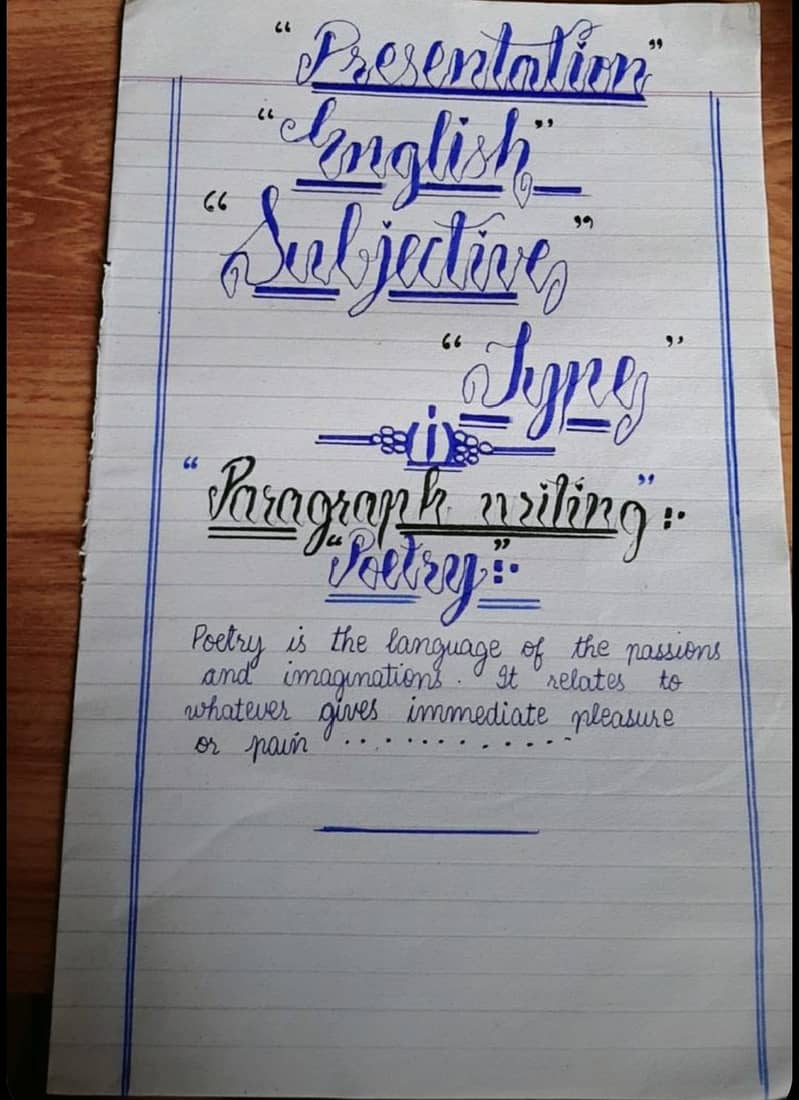 “Presentation”
“English”
“Subjective”
“Type”
(i)
“Paragraph writing”:·
“Poetry”:·
Poetry is the language of the passions
and imaginations. It relates to
whatever gives immediate pleasure
or pain ............